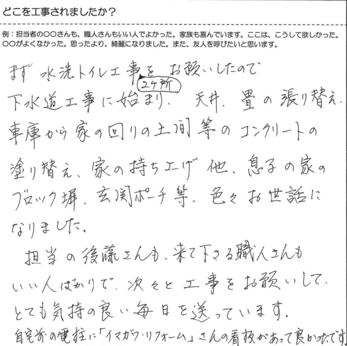 どこを工事されましたか？
例：担当者の〇〇さんも、職人さんもいい人でよかった。家族も喜んでいます。ここは、こうして欲しかった。
〇〇がよくなかった。思ったより、綺麗になりました。また、友人を呼びたいと思います。
まず 水洗トイレ工事を お願いしたので
2ヶ所
下水道工事に始まり、天井、畳の張り替え、
車庫から家の回りの土間等のコンクリートの
塗り替え、家の持ち上げ 他、息子の家の
ブロック塀、玄関ポーチ等、色々お世話に
なりました。
担当の後藤さんも、来て下さる職人さんも
いい人ばかりで、次々と工事をお願いして、
とても気持の良い毎日を送っています。
自宅前の電柱に「イマガワ・リフォーム」さんの看板があって良かったです。